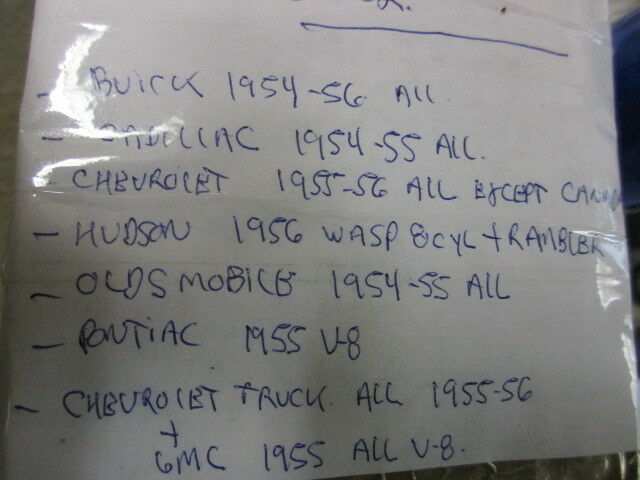 - BUICK 1954-56 All.
- CADILLAC 1954-55 All.
- CHEVROLET 1955-56 All EXCEPT CANADA
- HUDSON 1956 WASP 8CYL + RAMBLER
- OLDSMOBILE 1954-55 All
- PONTIAC 1955 V-8
- CHEVROLET TRUCK All 1955-56
+
GMC 1955 All V-8.